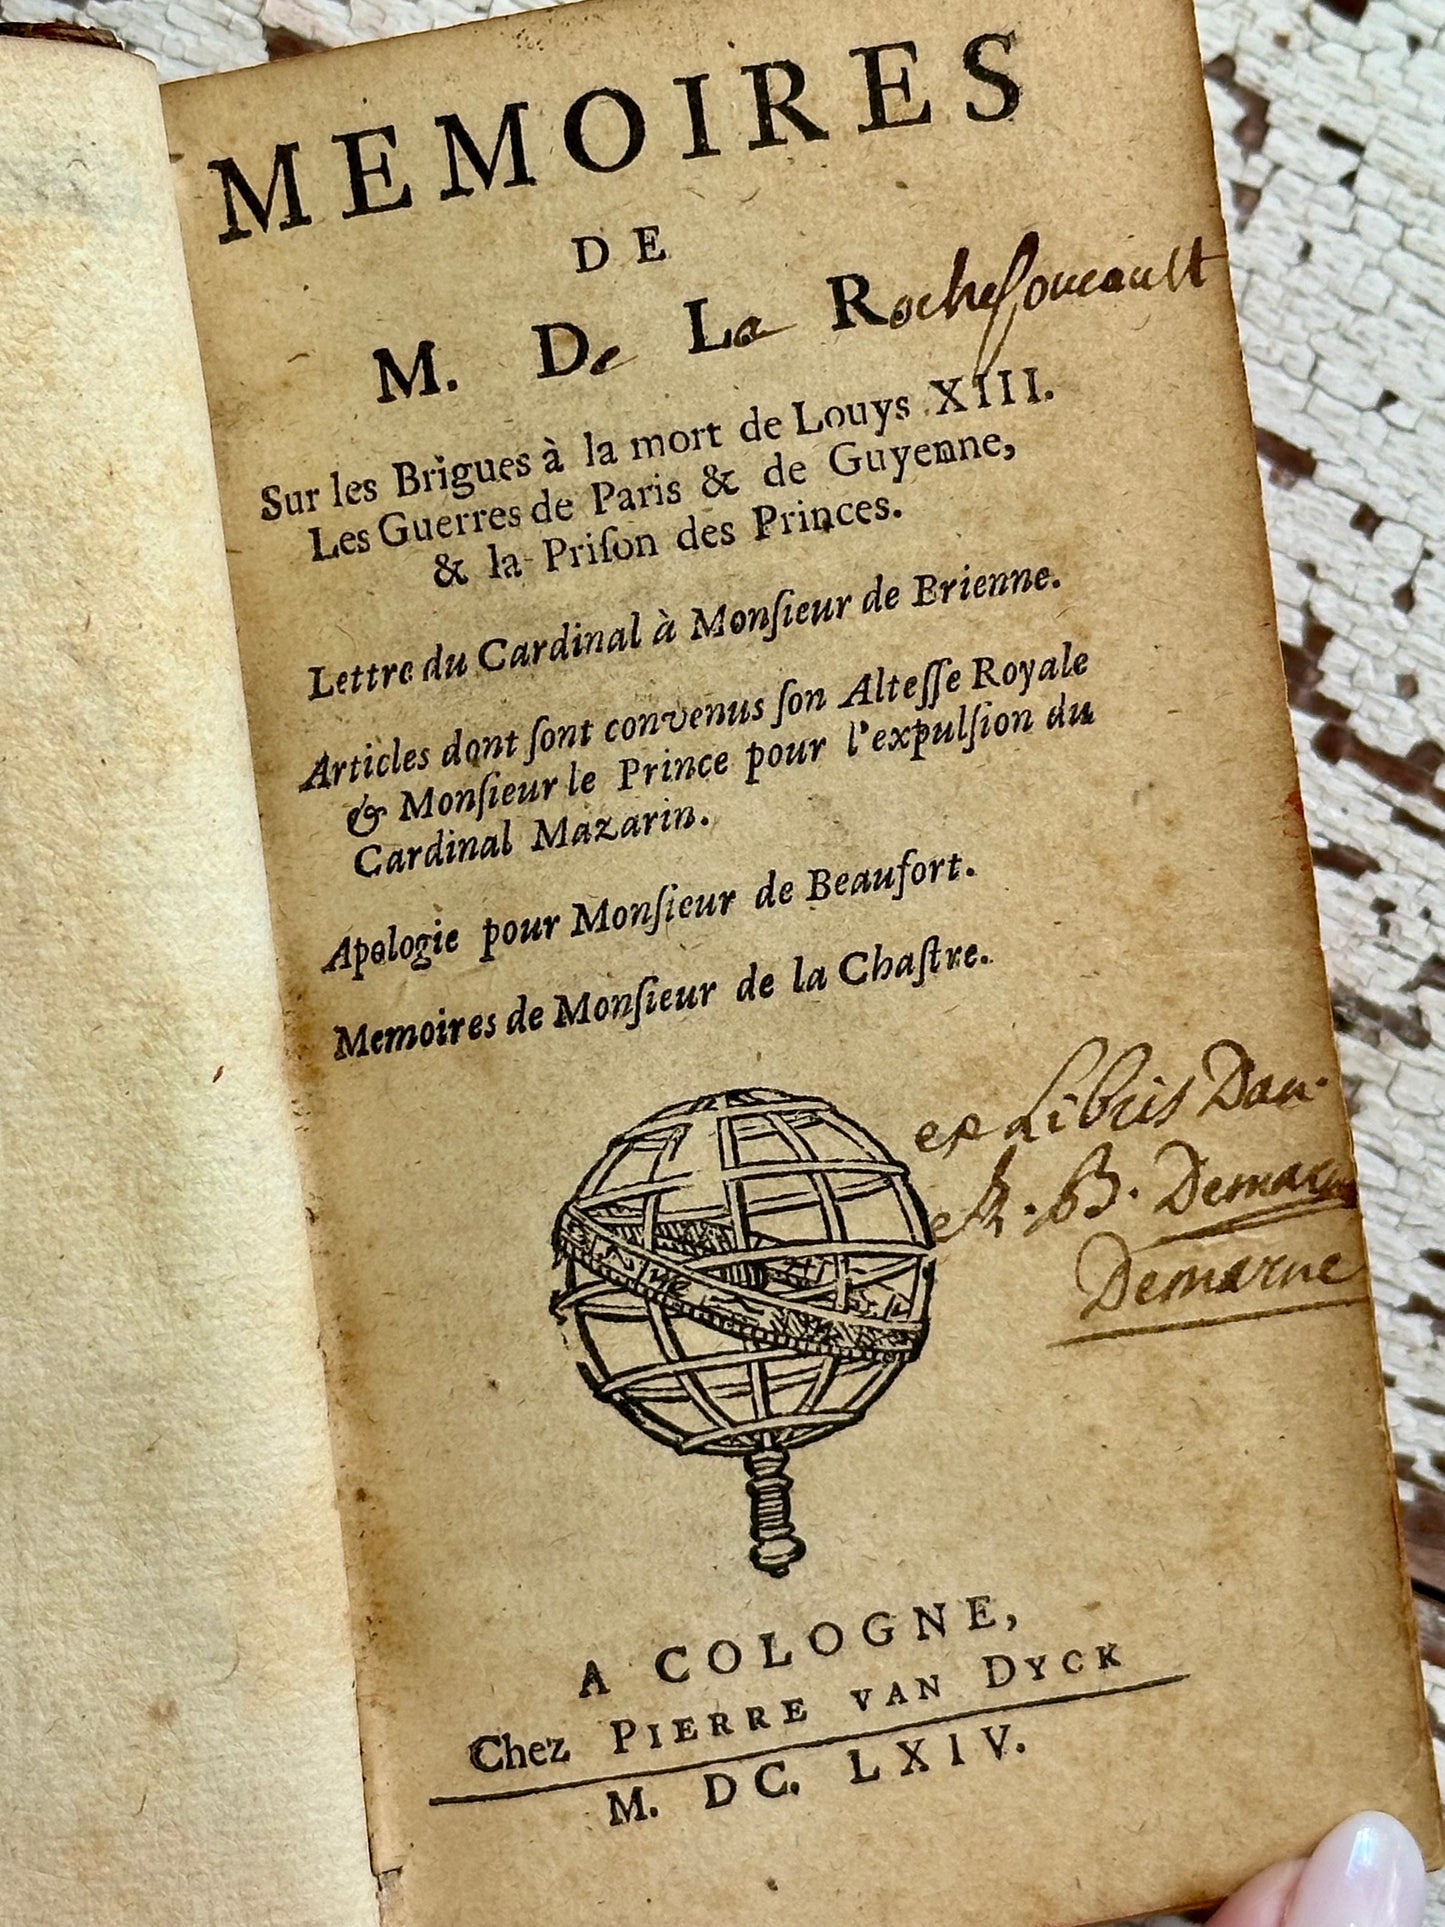 MEMOIRES
DE
M. De La Rochefoucault
Sur les Brigues à la mort de Louys XIII.
Les Guerres de Paris & de Guyenne,
& la Priſon des Princes.
Lettre du Cardinal à Monſieur de Brienne.
Articles dont ſont convenus ſon Alteſſe Royale
& Monſieur le Prince pour l'expulſion du
Cardinal Mazarin.
Apologie pour Monſieur de Beaufort.
Memoires de Monſieur de la Chaſtre.
ex Libris Dan.
B. Demarne
Demarne
A COLOGNE,
Chez PIERRE VAN DYCK
M. DC. LXIV.